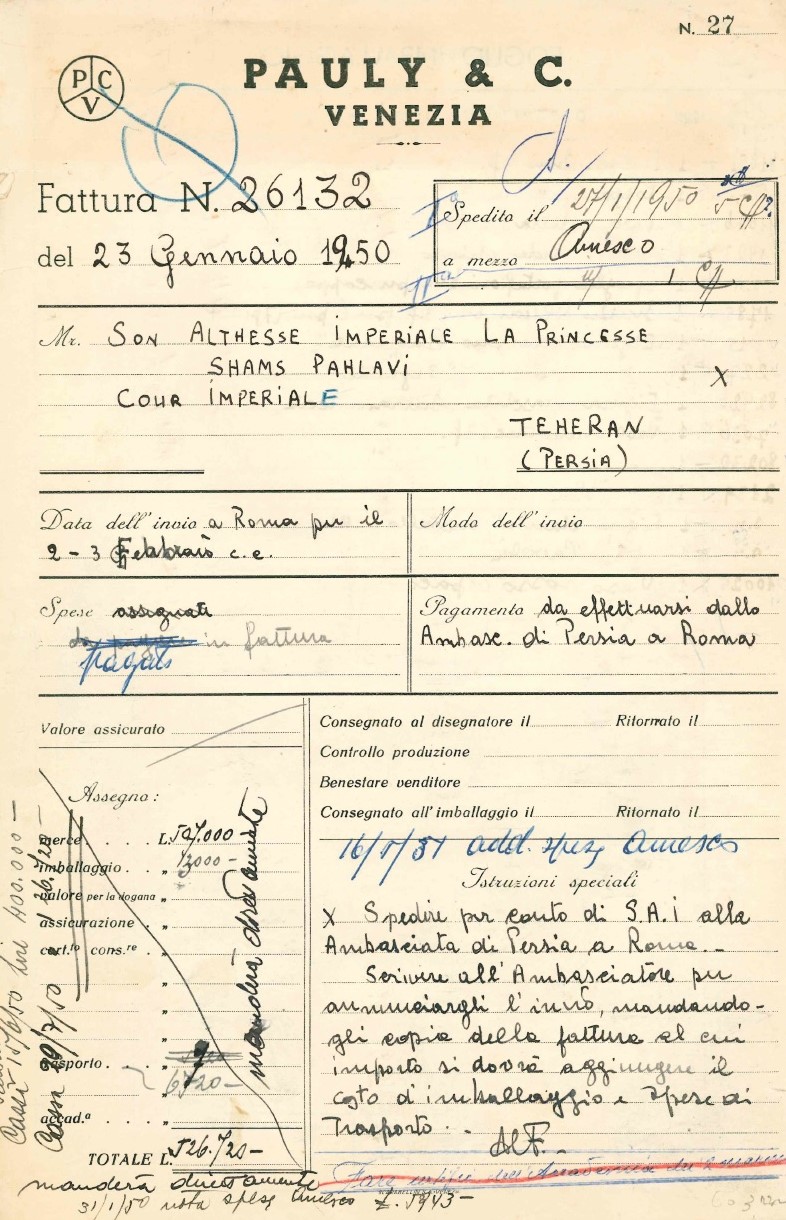 N. 27
P C V
PAULY & C.
VENEZIA
Fattura N. 26132
del 23 Gennaio 1950
Spedito il 27/1/1950
a mezzo Amesco
Mr. SON ALTHESSE IMPERIALE LA PRINCESSE
SHAMS PAHLAVI
X
COUR IMPERIALE
TEHERAN
(PERSIA)
Data dell'invio a Roma per il
2-3 Febbraio c.e.
Modo dell'invio
Spese assegnate
in fattura
pagate
Pagamento da effettuarsi dallo
Ambasc. di Persia a Roma
Valore assicurato
Consegnato al disegnatore il Ritornato il
Controllo produzione
Benestare venditore
Consegnato all'imballaggio il Ritornato il
16/5/51 add. spese Amesco
Assegno:
merce . . . . L.
imballaggio . . . „
valore per la dogana „
assicurazione . . „
cert.to cons.re . „
trasporto . . . „ 6720-
accad.a . . . „
TOTALE L. 526.720-
manderà direttamente
Istruzioni speciali
X Spedire per conto di S.A.I alla
Ambasciata di Persia a Roma.-
Scrivere all'Ambasciatore per
annunciargli l'invio, mandando-
gli copia della fattura al cui
importo si dovrà aggiungere il
costo d'imballaggio e spese di
Trasporto.
manderà direttamente
31/1/50 nota spese Amesco